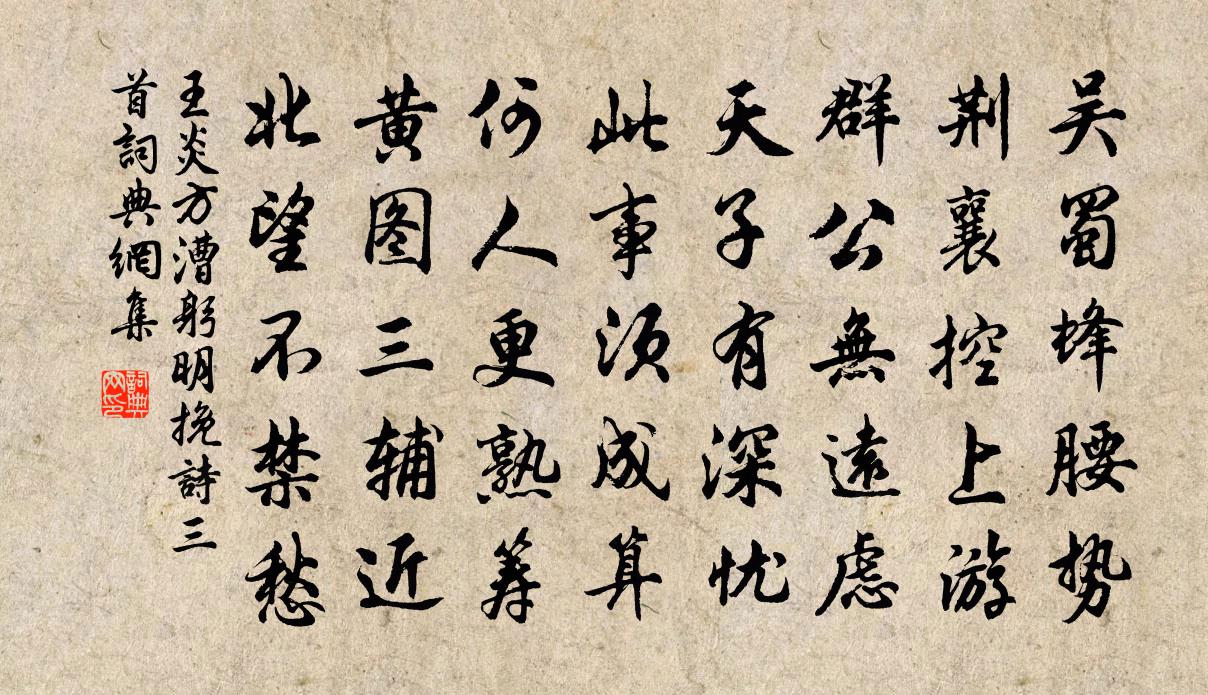 吴蜀蜂腰势
荆襄控上游
群公無遠慮
天子有深忧
此事须成算
何人更熟筹
黄图三辅近
北望不禁愁
王炎方漕躬明挽詩三
首詞典網集
詞典
网印